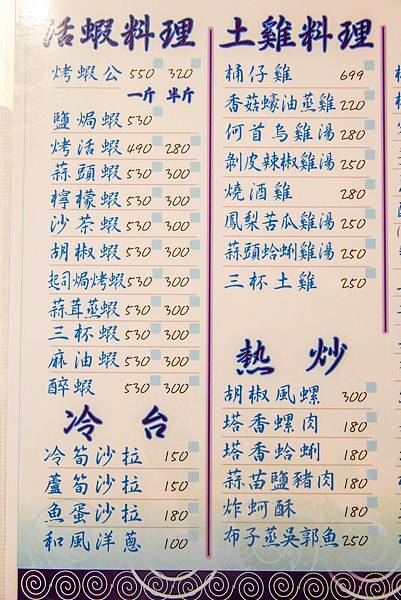 活蝦料理
烤蝦公 550 320
一斤 半斤
鹽焗蝦 530
烤活蝦 490 280
蒜頭蝦 530 300
檸檬蝦 530 300
沙茶蝦 530 300
胡椒蝦 530 300
起司焗烤蝦 530 300
蒜茸蒸蝦 530 300
三杯蝦 530 300
麻油蝦 530 300
醉蝦 530 300
冷台
冷筍沙拉 150
蘆筍沙拉 150
魚蛋沙拉 180
和風洋蔥 100
土雞料理
桶仔雞 699
香菇蠔油蒸雞 220
何首烏雞湯 280
剝皮辣椒雞湯 250
燒酒雞 280
鳳梨苦瓜雞湯 250
蒜頭蛤蜊雞湯 250
三杯土雞 250
熱炒
胡椒風螺 300
塔香螺肉 180
塔香蛤蜊 180
蒜苗鹽豬肉 180
炸蚵酥 180
布子蒸吳郭魚 250